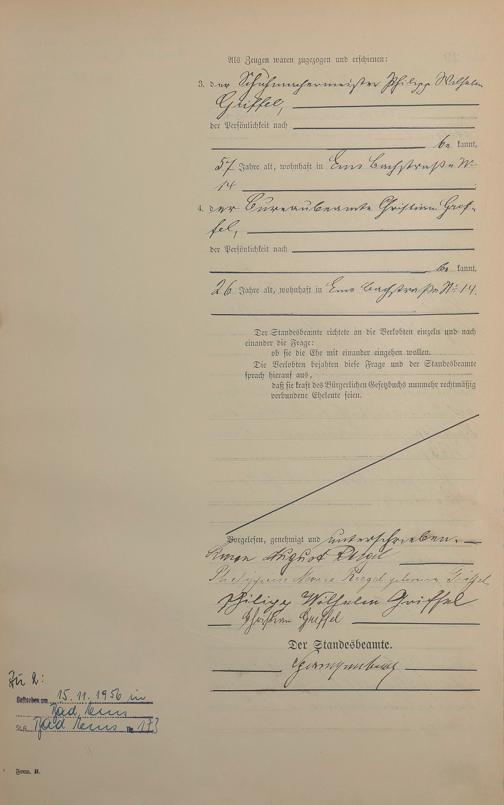 Als Zeugen waren zugezogen und erschienen:
3. der Schuhmachermeister Philipp Wilhelm
Griffel,
der Persönlichkeit nach
be kannt,
57 Jahre alt, wohnhaft in Ems Bachstraße №
14
4. der Bureaubeamte Christian Grif-
fel,
der Persönlichkeit nach
be kannt,
26 Jahre alt, wohnhaft in Ems Bachstraße № 14.
Der Standesbeamte richtete an die Verlobten einzeln und nach
einander die Frage:
ob sie die Ehe mit einander eingehen wollen.
Die Verlobten bejahten diese Frage und der Standesbeamte
sprach hierauf aus,
daß sie kraft des Bürgerlichen Gesetzbuchs nunmehr rechtmäßig
verbundene Eheleute seien.
Vorgelesen, genehmigt und unterschrieben.
August
Marie geborene Griffel
Philipp Wilhelm Griffel
Christian Griffel
Der Standesbeamte.
Zu 2:
Gestorben am 15.11.1956 in
Bad Ems
StA. Bad Ems Nr 173
Form. B.